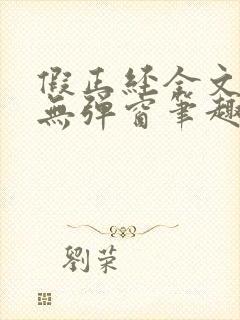 假正經全文
無彈窗筆趣
劉荣